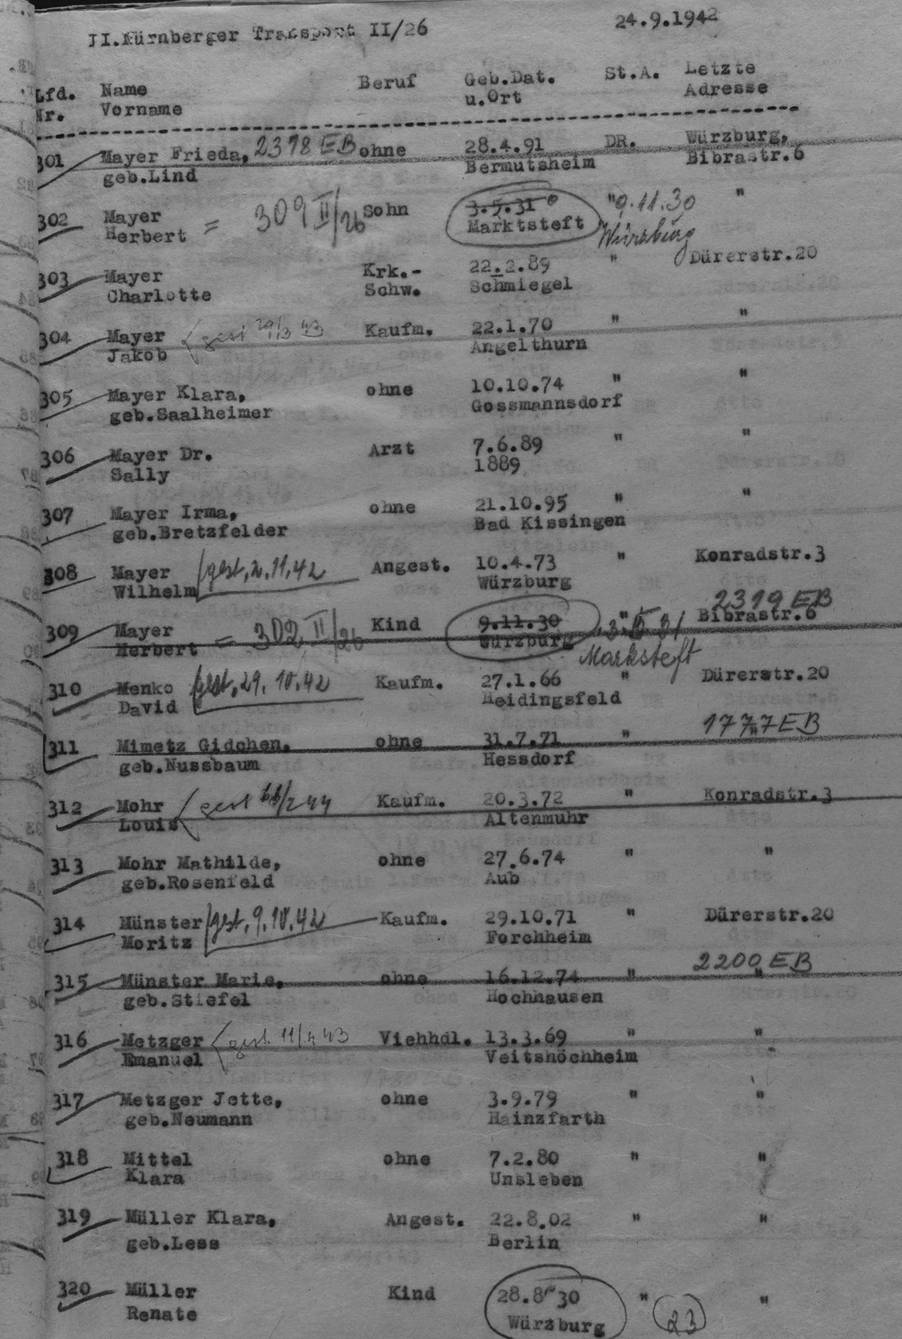 II.Nürnberger Transport II/26 24.9.1942
Lfd. Name Beruf Geb.Dat. St.A. Letzte
Nr. Vorname u.Ort Adresse
301 Mayer Frieda, 2378 EB ohne 28.4.91 DR. Würzburg,
geb.Lind Bermutsheim Bibrastr.6
302 Mayer = 309 II/26 Sohn 3.5.31 " 9.11.30 "
Herbert Marktsteft Würzburg
303 Mayer Krk.- 22.2.89 " Dürerstr.20
Charlotte Schw. Schmiegel
304 Mayer gest 29/3 43 Kaufm. 22.1.70 " "
Jakob Angelthurn
305 Mayer Klara, ohne 10.10.74 " "
geb.Saalheimer Gossmannsdorf
306 Mayer Dr. Arzt 7.6.89 " "
Sally 1889
307 Mayer Irma, ohne 21.10.95 " "
geb.Bretzfelder Bad Kissingen
308 Mayer gest. 2.11.42 Angest. 10.4.73 " Konradstr.3
Wilhelm Würzburg
2379 EB
309 Mayer = 302 II/26 Kind 9.11.30 " 3.5 31 Bibrastr.6
Herbert Würzburg Marksteft
310 Menko gest. 29.10.42 Kaufm. 27.1.66 " Dürerstr.20
David Heidingsfeld
1777 EB
311 Mimetz Gidchen, ohne 31.7.71 " "
geb.Nussbaum Hessdorf
312 Mohr gest /2 44 Kaufm. 20.3.72 " Konradstr.3
Louis Altenmuhr
313 Mohr Mathilde, ohne 27.6.74 " "
geb.Rosenfeld Aub
314 Münster gest. 9.10.42 Kaufm. 29.10.71 " Dürerstr.20
Moritz Forchheim
2200 EB
315 Münster Marie, ohne 16.12.74 " "
geb.Stiefel Hochhausen
316 Metzger gest. 11/4 43 Viehhdl. 13.3.69 " "
Emanuel Veitshöchheim
317 Metzger Jette, ohne 3.9.79 " "
geb.Neumann Hainzfarth
318 Mittel ohne 7.2.80 " "
Klara Unsleben
319 Müller Klara, Angest. 22.8.02 " "
geb.Less Berlin
320 Müller Kind 28.8.30 " "
Renate Würzburg 23